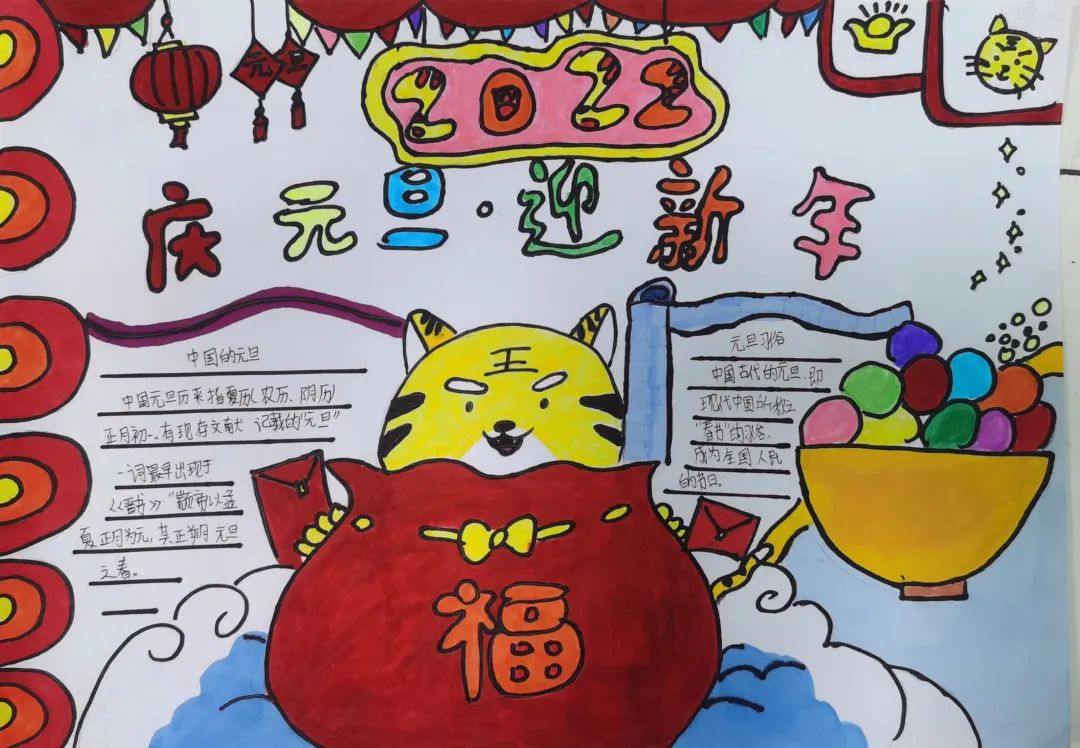 元旦
2022
庆元旦·迎新年
中国的元旦
中国元旦历来指夏历、农历、阴历
正月初一。有现存文献 记载的"元旦"
一词最早出现于
《晋书》:"颛帝以孟
夏正月为元,其正朔 元旦
之春。
元旦习俗
中国古代的元旦,即
现代中国的
"春节"的习俗,
成为全国人民
的节日。
王
福